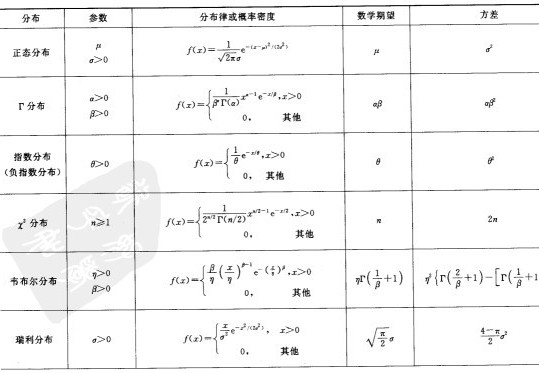 分布 参数 分布律或概率密度 数学期望 方差
正态分布 μ σ>0 f(x)=1/(√(2π)σ) e^{-(x-μ)²/(2σ²)} μ σ²
Γ分布 α>0 β>0 f(x)={1/(β^αΓ(α)) x^{α-1}e^{-x/β},x>0
0, 其他 αβ αβ²
指数分布 (负指数分布) θ>0 f(x)={1/θ e^{-x/θ},x>0
0, 其他 θ θ²
χ²分布 n≥1 f(x)={1/(2^{n/2}Γ(n/2)) x^{n/2-1}e^{-x/2},x>0
0, 其他 n 2n
韦布尔分布 η>0 β>0 f(x)={β/η (x/η)^{β-1} e^{-(x/η)^β},x>0
0, 其他 ηΓ(1/β+1) η²{Γ(2/β+1)-[Γ(1/β+1
瑞利分布 σ>0 f(x)={x/σ² e^{-x²/(2σ²)}, x>0
0, 其他 √(π/2)σ (4-π)/2 σ²